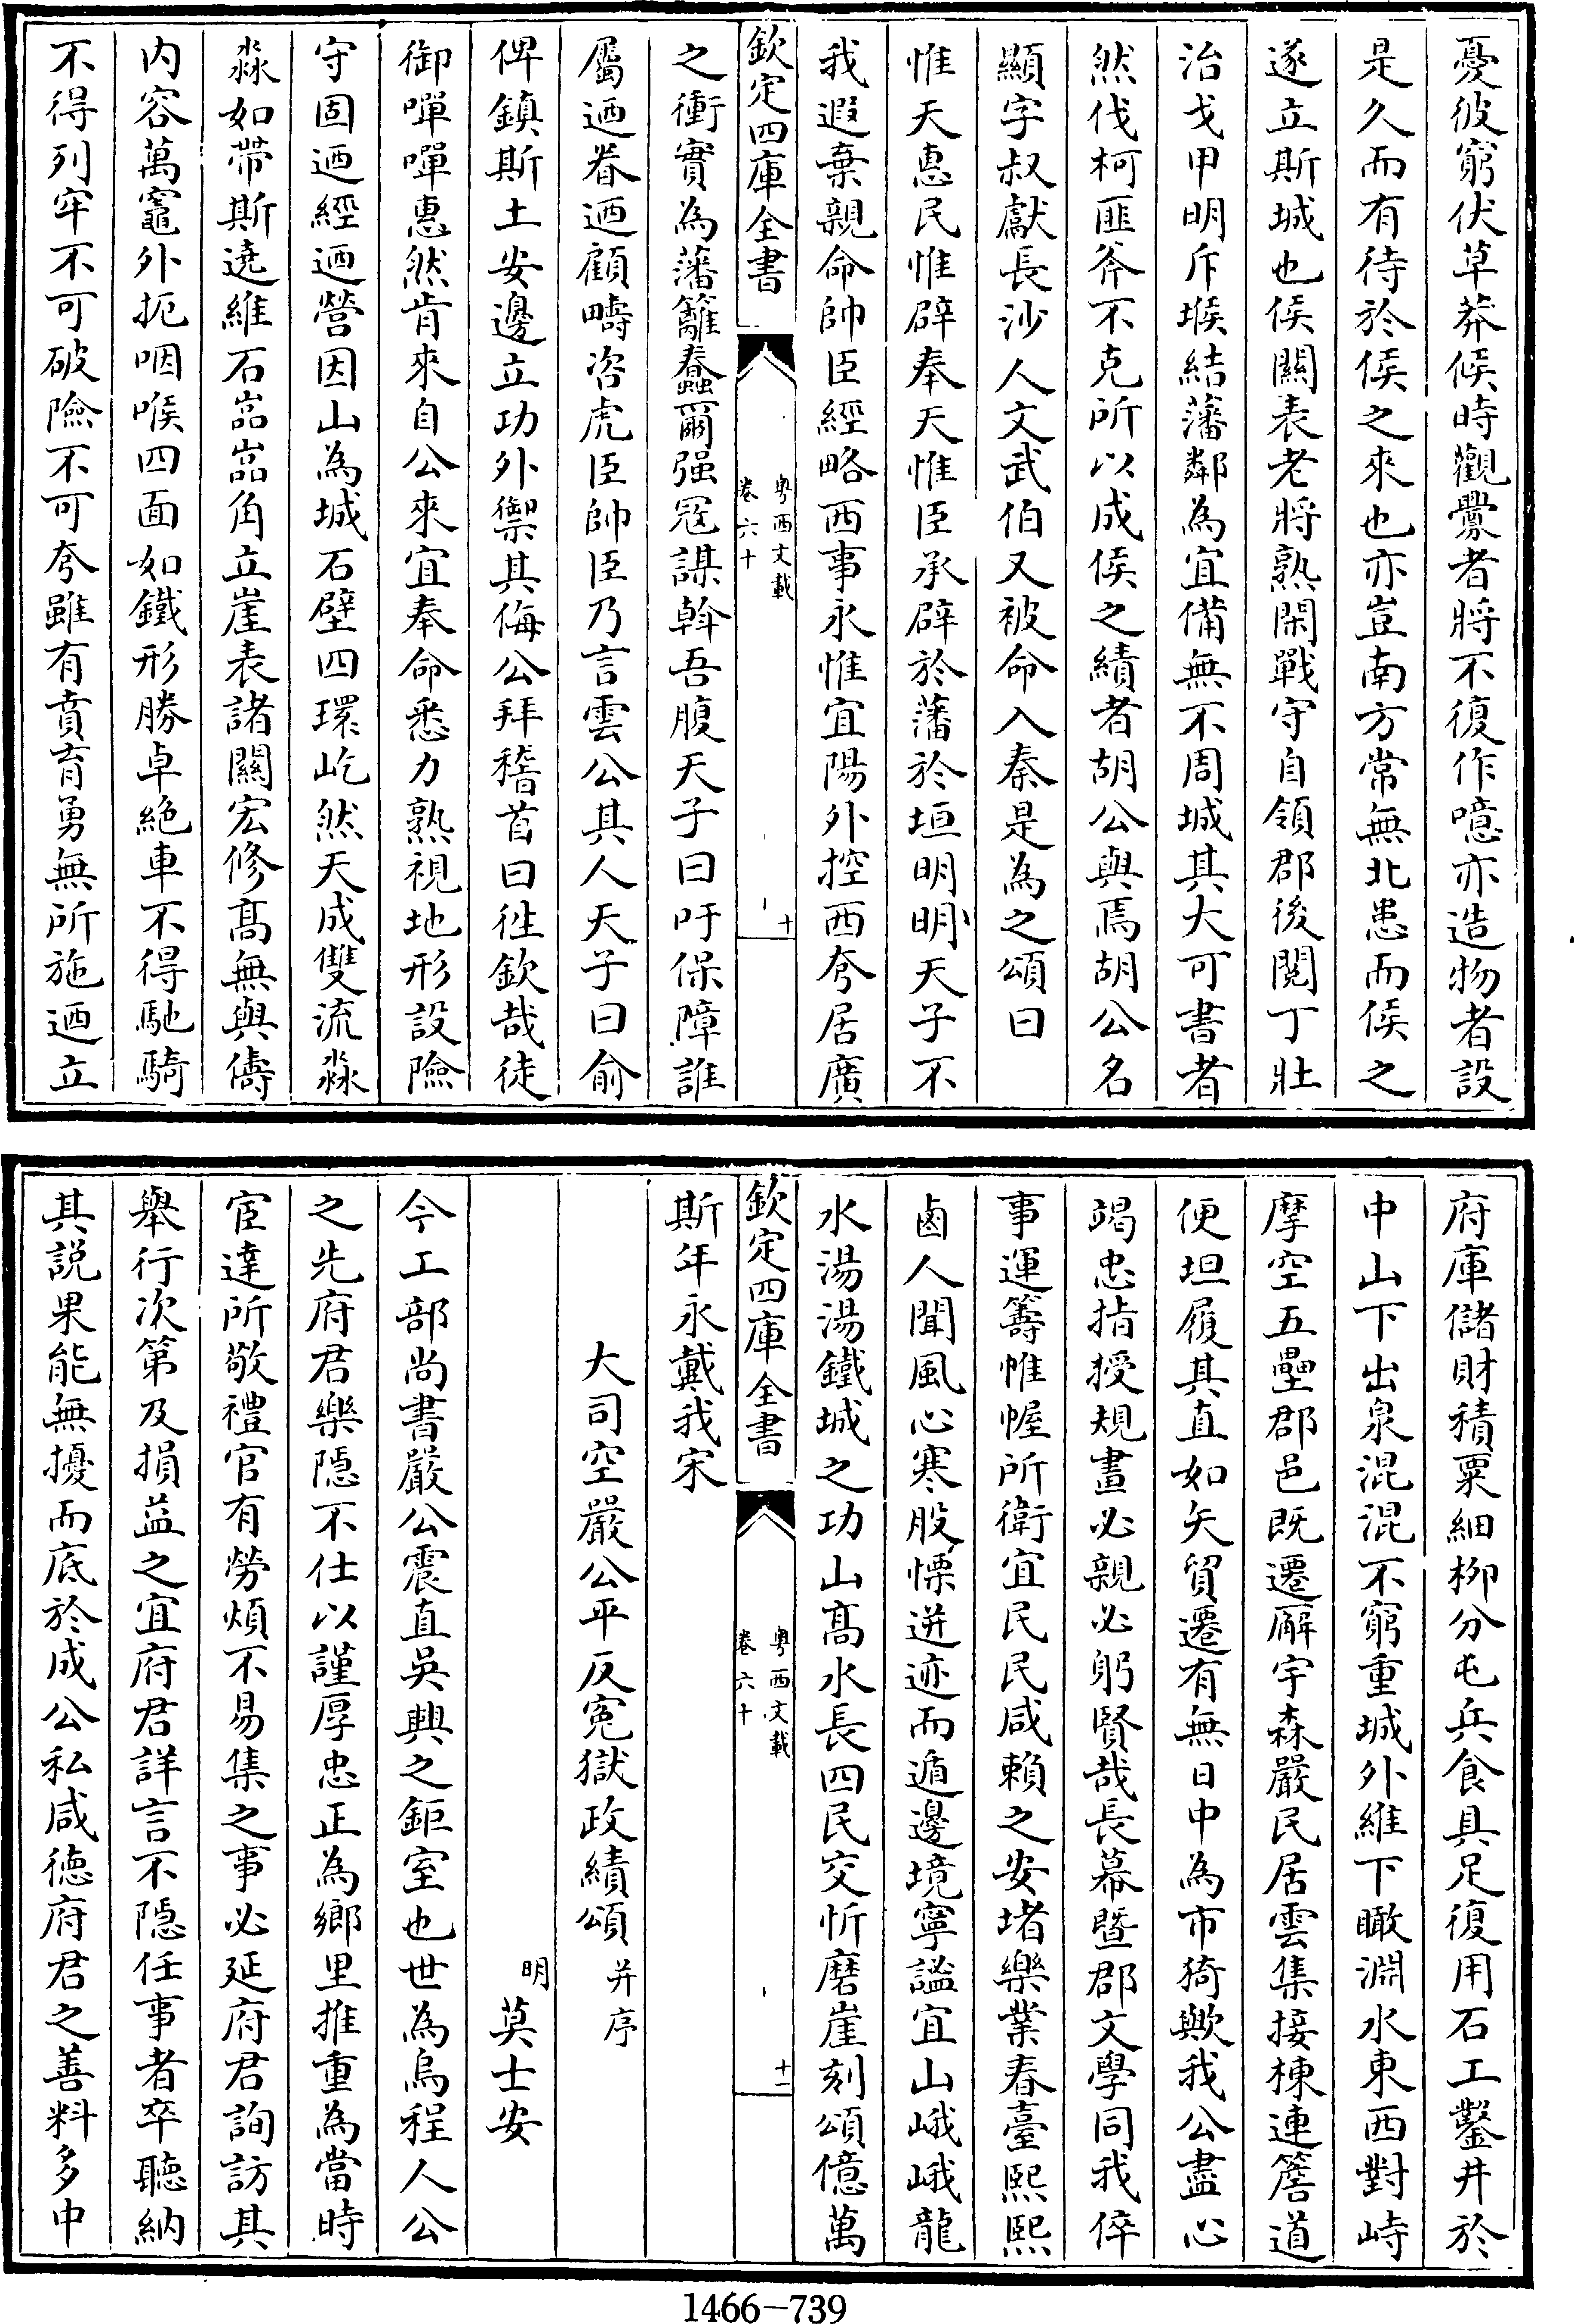 憂彼窮伏草莽候時觀釁者將不復作噫亦造物者設
是久而有待於侯之來也亦豈南方常無北患而侯之
遂立斯城也侯關表老將熟閑戰守自領郡後閲丁壯
治戈甲明斥堠結藩鄰為宜備無不周城其大可書者
然伐柯匪斧不克所以成侯之績者胡公與焉胡公名
顯字叔獻長沙人文武伯又被命入秦是為之頌曰
惟天惠民惟辟奉天惟臣承辟於藩於垣明明天子不
我遐棄親命帥臣經略西事永惟宜陽外控西夸居廣
欽定四庫全書
粵西文載
卷六十
十
之衝實為藩籬蠢爾强寇謀斡吾腹天子曰吁保障誰
屬迺眷迺顧疇咨虎臣帥臣乃言雲公其人天子曰俞
俾鎮斯土安邊立功外禦其侮公拜稽首曰徃欽哉徒
御嘽嘽惠然肯來自公來宜奉命悉力熟視地形設險
守固迺經迺營因山為城石壁四環屹然天成雙流淼
淼如帶斯遶維石嵓嵓角立崖表諸關宏修髙無與儔
内容萬竈外扼咽喉四面如鐵形勝卓絶車不得馳騎
不得列牢不可破險不可夸雖有賁育勇無所施迺立
府庫儲財積粟細柳分屯兵食具足復用石工鑿井於
中山下下出泉混混不窮重城外維下瞰淵水東西對峙
摩空五壘郡邑既遷廨宇森嚴民居雲集接棟連簷道
便坦履其直如矢貿遷有無日中為市猗歟我公盡心
竭忠指授規畫必親必躬賢哉長幕暨郡文學同我倅
事運籌帷幄所衛宜民民咸賴之安堵樂業春臺熙熙
鹵人聞風心寒股慄迸迹而遁邊境寧謐宜山峨峨龍
水湯湯鐵城之功山髙水長四民交忻磨崖刻頌億萬
欽定四庫全書
粵西文載
卷六十
十一
斯年永戴我宋
大司空嚴公平反冤獄政績頌并序
明莫士安
今工部尚書嚴公震直吳興之鉅室也世為烏程人公
之先府君樂隱不仕以謹厚忠正為鄉里推重為當時
宦達所敬禮官有勞煩不易集之事必延府君詢訪其
舉行次第及損益之宜府君詳言不隱任事者卒聽納
其說果能無擾而底於成公私咸德府君之善料多中
1466-739